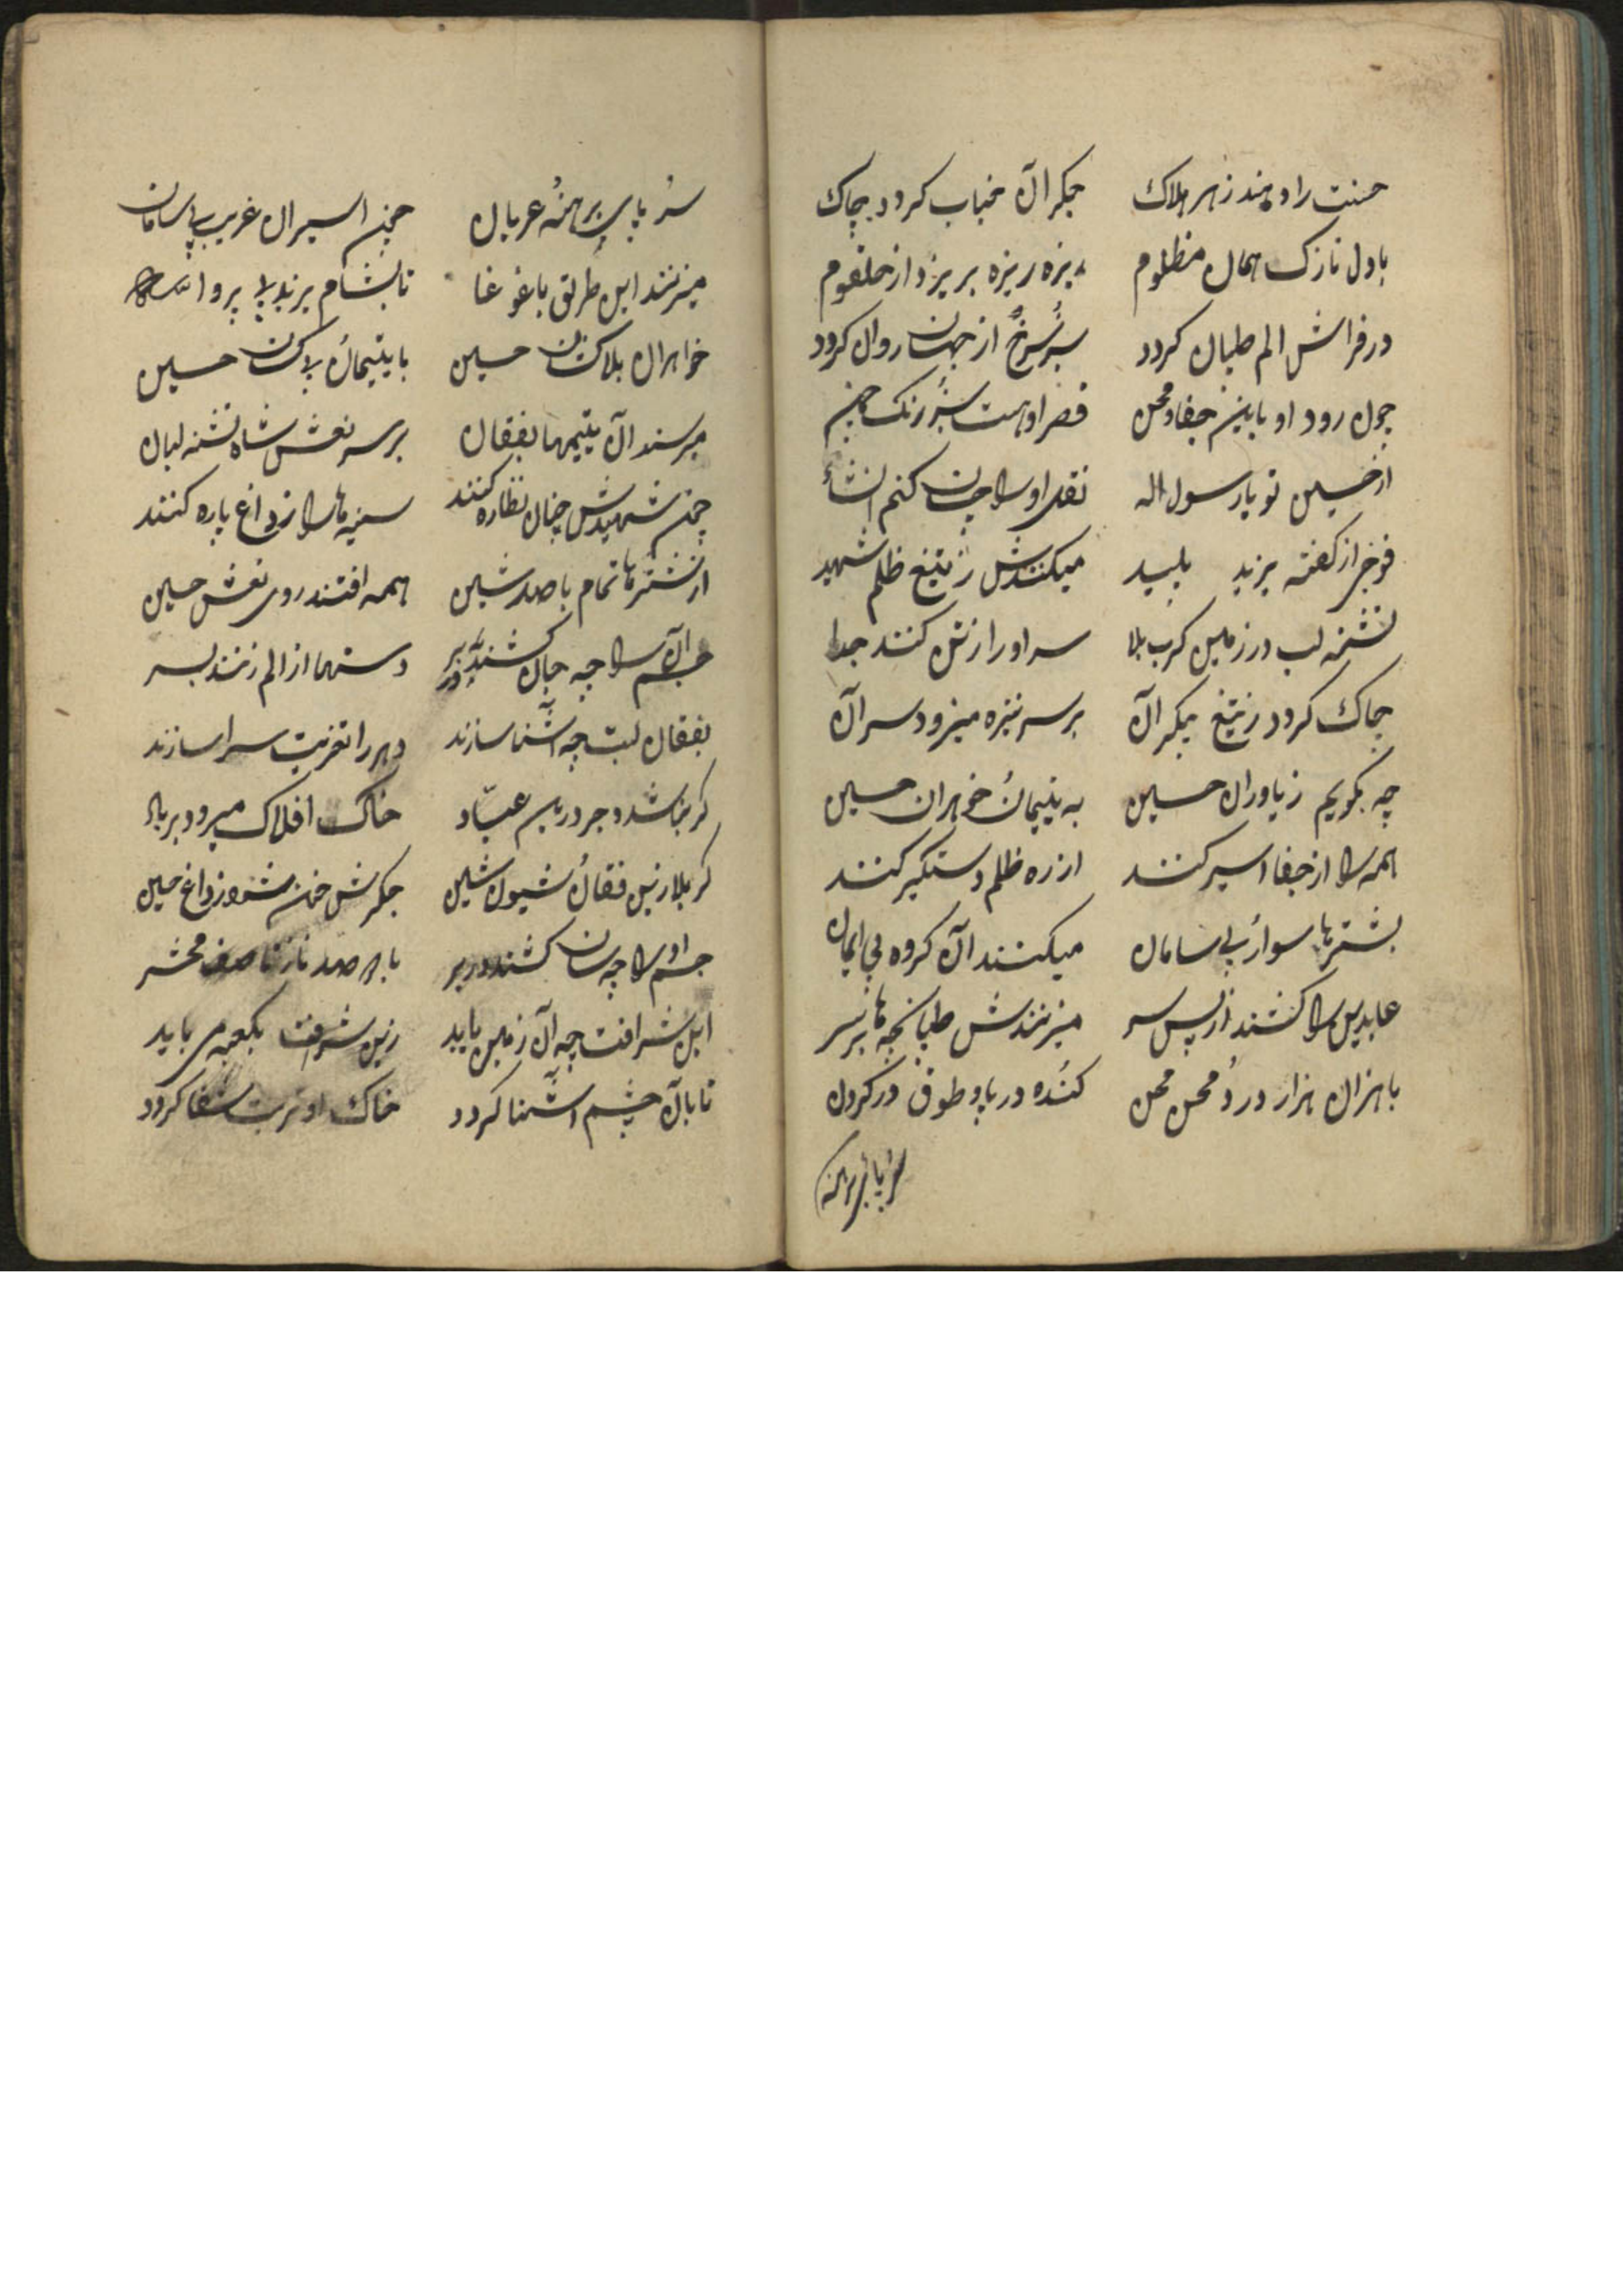 حسنت را دهند زهر هلاک جکر آن جناب کردد چاک
با دل نازک همان مظلوم ریزه ریزه بریزد از حلقوم
در فراش الم طپان کردد سبز و سرخ از جهان روان کردد
چون رود او باین جفا و محن قصر او هست سبز رنک
از حسین تو یا رسول اله نقل او را چسان کنم انشاء
فوجی از کفته یزید پلید میکنندش ز تیغ ظلم شهید
تشنه لب در زمین کرب بلا سر او را ز تن کنند جدا
چاک کردد ز تیغ پیکر آن بر سر نیزه میرود سر آن
چه بکویم ز یاوران حسین به یتیمان و خوهران حسین
همه را از جفا اسیر کنند از ره ظلم دستکیر کنند
بشترها سوار و بی سامان میکنند آن کروه بی ایمان
عابدین را کشند از پس سر میزنندش طپانچه ها بر سر
با هزان هزار درد و محن محن کنده در پا و طوق در کردن
سر و پا برهنه
سر و پای برهنه و عریان چون اسیران غریب بی سامان
میزنند این طریق با غوغا تا بشام یزید بی پروا
خواهران بلاکشان حسین با یتیمان حسین
میرسند آن یتیمها بفقان بر سر نعش شاه تشنه لبان
چون شهیدش چنان نظاره کنند سینه ها را ز داغ پاره کنند
از شترها تمام با صد شین همه افتند روی نعش حسین
جسم آن را چه جان کشند ببر دستها از الم زنند بسر
بفقان لب چه آشنا سازند دهر را تعزیت سرا سازند
خاک افلاک میرود بر باد
کربلا زین فقان و شیون و شین جکرش خون شود ز داغ حسین
جسم او را چه سان کشند در بر با صد ناز تا صف محشر
این شرافت چه آن زمین یابد زین شرافت بکعبه می باید
تا بآن چشم آشنا کردد خاک او تربت شفا کردد